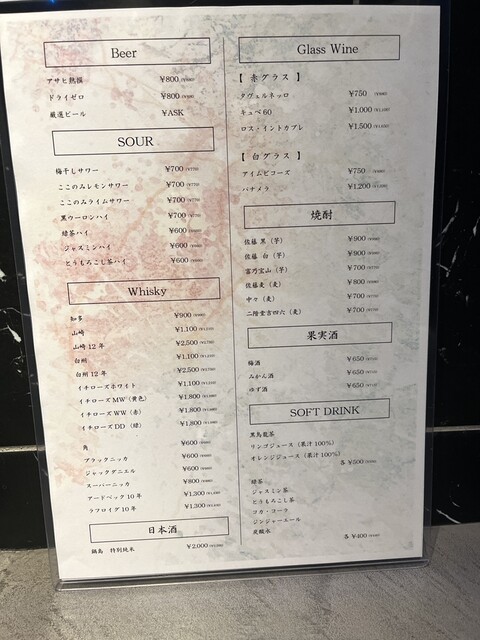 Beer
アサヒ熟撰 ¥800
ドライゼロ ¥800
厳選ビール ¥ASK
SOUR
梅干しサワー ¥700
ここのみレモンサワー ¥700
ここのみライムサワー ¥700
黒ウーロンハイ ¥700
緑茶ハイ ¥600
ジャスミンハイ ¥600
とうもろこし茶ハイ ¥600
Whisky
知多 ¥900
山崎 ¥1,100
山崎12年 ¥2,500
白州 ¥1,100
白州12年 ¥2,500
イチローズホワイト ¥1,100
イチローズMW（黄色） ¥1,800
イチローズWW（赤） ¥1,800
イチローズDD（緑） ¥1,800
角 ¥600
ブラックニッカ ¥600
ジャックダニエル ¥600
スーパーニッカ ¥800
アードベック10年 ¥1,300
ラフロイグ10年 ¥1,300
日本酒
鍋島 特別純米 ¥2,000
Glass Wine
【 赤グラス 】
タヴェルネッロ ¥750
キュベ60 ¥1,000
ロス・イントカブレ ¥1,500
【 白グラス 】
アイムピコーズ ¥750
パナメラ ¥1,200
焼酎
佐藤 黒（芋） ¥900
佐藤 白（芋） ¥900
富乃宝山（芋） ¥700
佐藤麦（麦） ¥800
中々（麦） ¥700
二階堂吉四六（麦） ¥700
果実酒
梅酒 ¥650
みかん酒 ¥650
ゆず酒 ¥650
SOFT DRINK
黒烏龍茶
リンゴジュース（果汁100%）
オレンジジュース（果汁100%）
各¥500
緑茶
ジャスミン茶
とうもろこし茶
コカ・コーラ
ジンジャーエール
炭酸水
各¥400